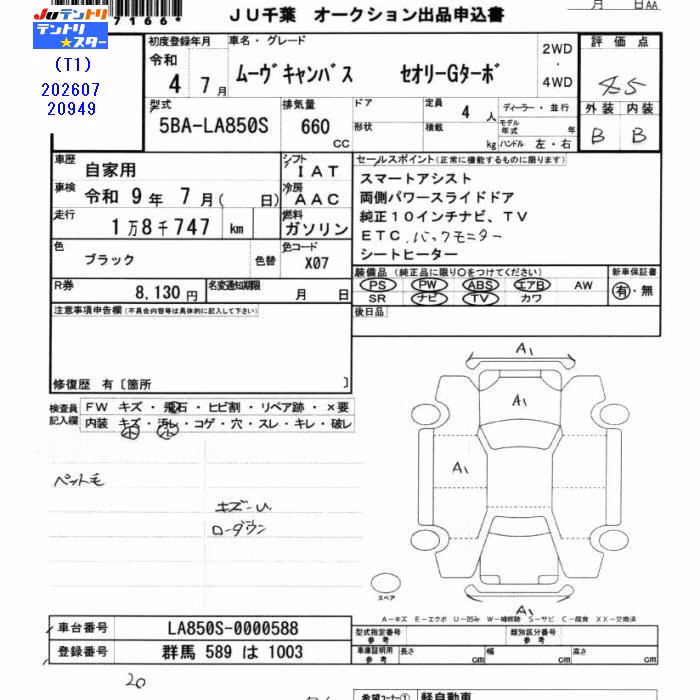 7166*
JU千葉 オークション出品申込書
月 日AA
JUテントリ
テントリ★スター
(T1)
202607
20949
初度登録年月 車名・グレード 2WD・4WD 評価点
令和 4年 7月 ムーヴキャンバス セオリーGターボ 4.5
型式 5BA-LA850S 排気量 660 CC ドア 形状 定員 4人 積載 kg ディーラー・並行 モデル年式 年 ハンドル 左・右 外装 B 内装 B
車歴 自家用 シフト IAT セールスポイント(正常に機能するものに限ります)
車検 令和 9年 7月( 日) 冷房 AAC スマートアシスト
両側パワースライドドア
走行 1万8千747 km 燃料 ガソリン 純正10インチナビ、TV
ETC バックモニター
色 ブラック 色替 色コード X07 シートヒーター
装備品(純正品に限り○をつけてください) 新車保証書
R券 8,130円 名変通知期限 月 日 PS PW ABS エアB AW 有・無
SR ナビ TV カワ
注意事項申告欄(不具合内容等は具体的に記入して下さい) 後日品
修復歴 有〔箇所 〕
検査員記入欄 FW キズ・飛石・ヒビ割・リペア跡・×要
内装 キズ・汚レ・コゲ・穴・スレ・キレ・破レ
小 小
ペット毛
キズ-U
ローダウン
A1
A1
A1
A1
スペア
A-キズ E-エクボ U-凹み W-補修跡 S-サビ C-腐食 XX-交換済
車台番号 LA850S-0000588 型式指定番号 参考 類別区分番号 参考
登録番号 群馬 589 は 1003 車庫証明用 参考 長さ cm 幅 cm 高さ cm
20
希望コーナー① 軽自動車